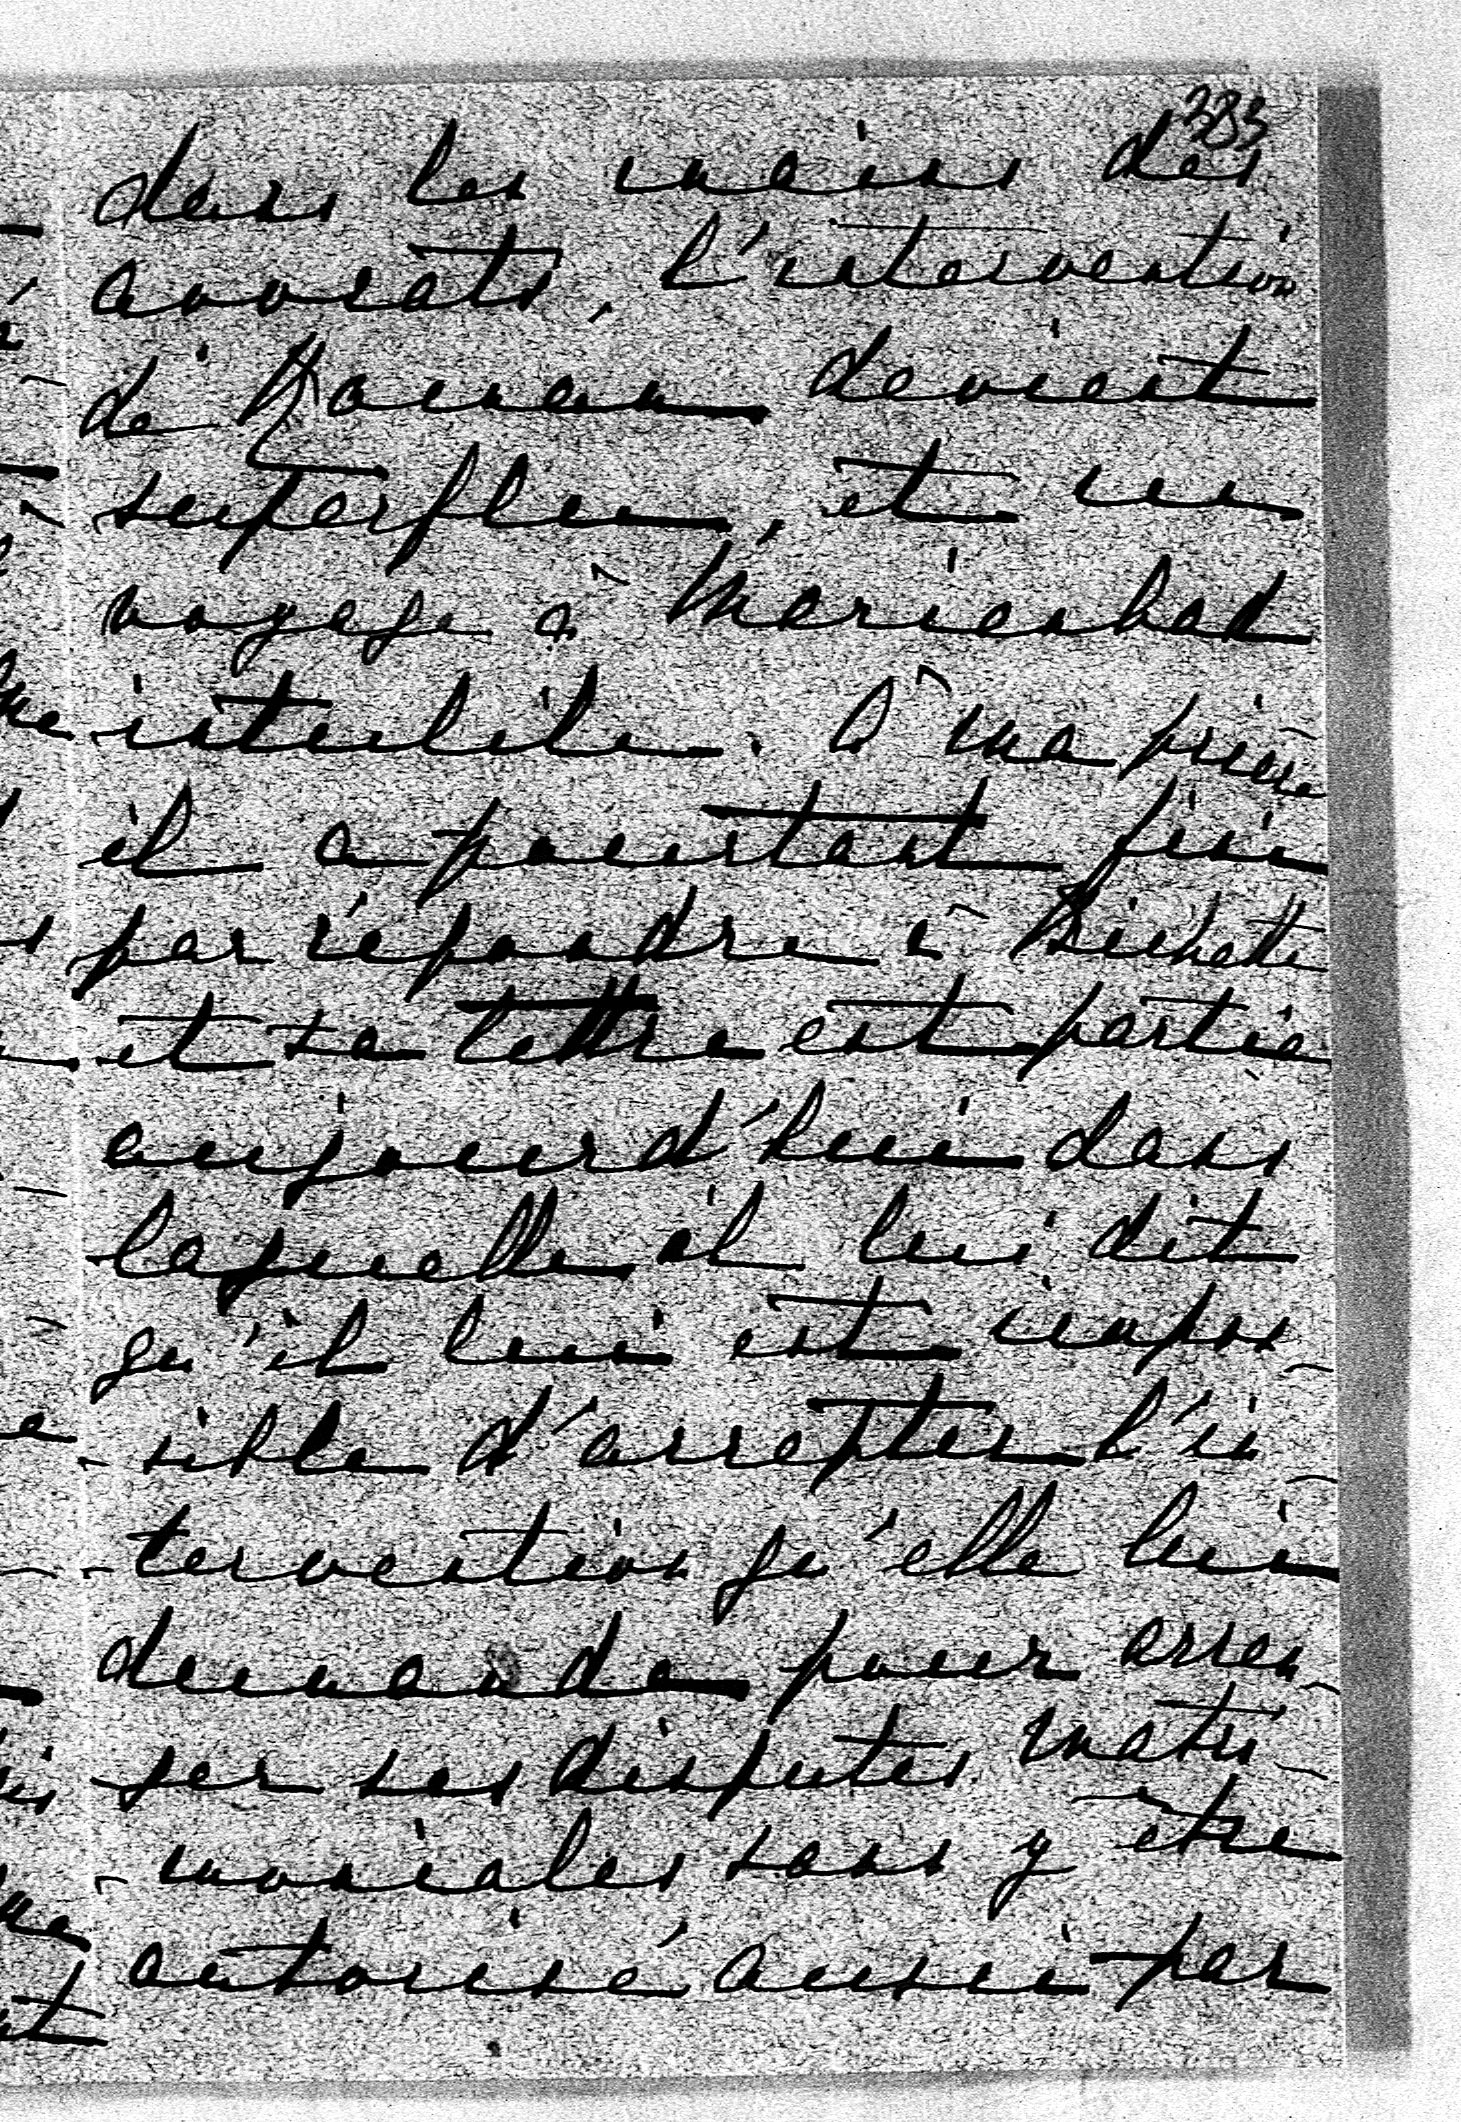 383
dans les mains des
avocats, l'intervention
de Romeu devient
superflue, et un
voyage à Marienbad
inutile. A ma prière
il a pourtant fini
par répondre à
et sa lettre est partie
aujourd'hui dans
laquelle il lui dit
qu'il lui est impos
sible d'accepter l'in
tervention qu'elle lui
demande pour arran
ger ses disputes matri
moniales sans y être
autorisé aussi par